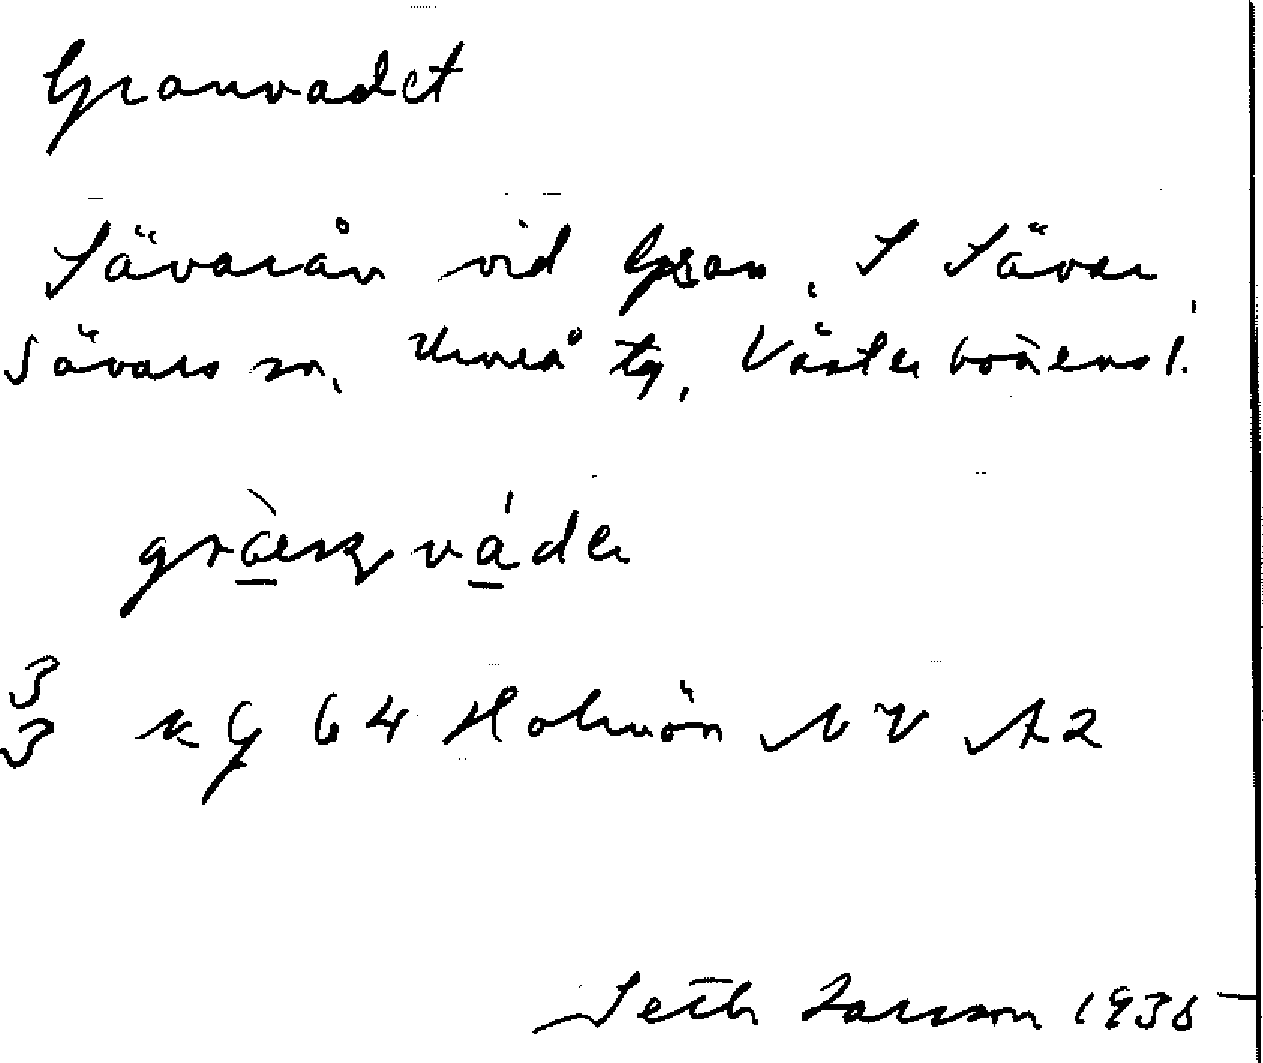 Granvadet
Sävarån vid Gran, S Sävar,
Sävars sn, Umeå tg, Västerbottens l.
3
3 kg 64 Holmön NV A2
Seth Larsson 1938